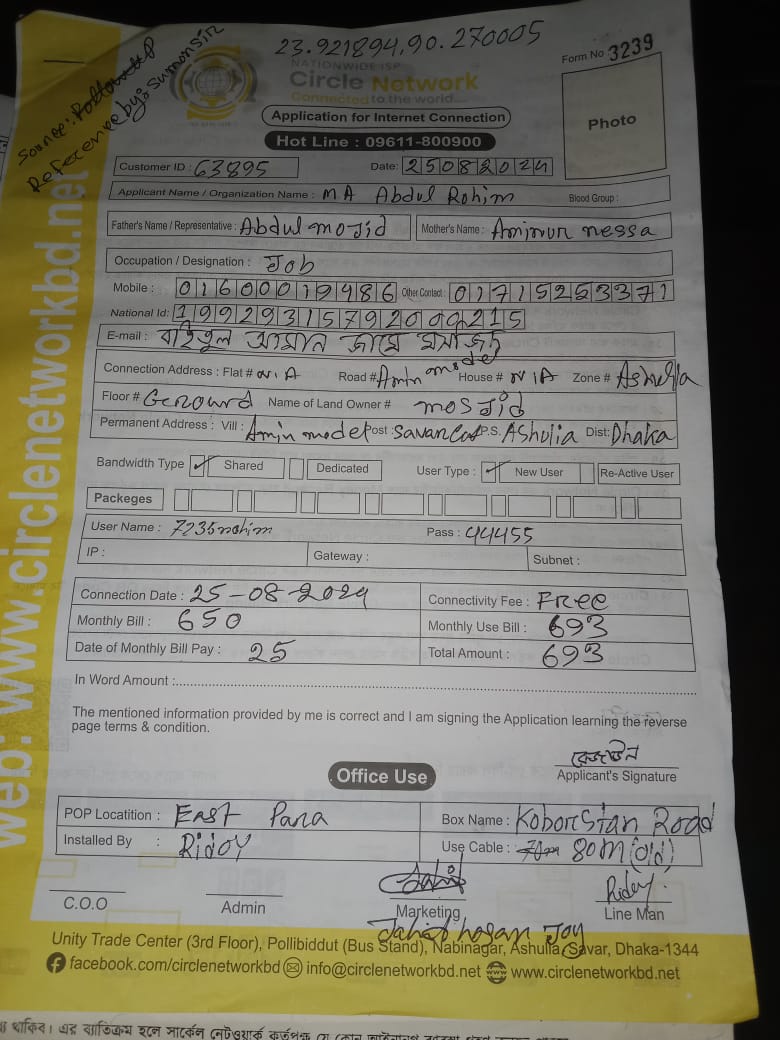 23.921894,90.270005
Source: Follow up
Reference by: Sumon sir
Form No 3239
NATIONWIDE ISP
Circle Network
Connected to the world....
Application for Internet Connection
Hot Line : 09611-800900
Photo
Customer ID : 63895 Date: 25082024
Applicant Name / Organization Name : MA Abdul Rohim Blood Group :
Father's Name / Representative : Abdul mojid Mother's Name : Aminun nessa
Occupation / Designation : Job
Mobile : 01600019486 Other Contact : 01715253371
National Id: 19929315792000215
E-mail : বাইতুল আমান জামে মসজিদ
Connection Address : Flat # N.A Road # Amin model House # N/A Zone # Ashulia
Floor # Genound Name of Land Owner # mosjid
Permanent Address : Vill : Amin model Post : Savar P.S. Ashulia Dist: Dhaka
Bandwidth Type ✓ Shared Dedicated User Type : ✓ New User Re-Active User
Packeges
User Name : 7235rohim Pass : 44455
IP : Gateway : Subnet :
Connection Date : 25-08-2024 Connectivity Fee : Free
Monthly Bill : 650 Monthly Use Bill : 693
Date of Monthly Bill Pay : 25 Total Amount : 693
In Word Amount :
The mentioned information provided by me is correct and I am signing the Application learning the reverse
page terms & condition.
Applicant's Signature
Office Use
POP Locatition : East Para Box Name : Koborstan Road
Installed By : Ridoy Use Cable : 80m (old)
Ridoy
C.O.O Admin Marketing Line Man
Jahid hasan Joy
Unity Trade Center (3rd Floor), Pollibiddut (Bus Stand), Nabinagar, Ashulia, Savar, Dhaka-1344
facebook.com/circlenetworkbd info@circlenetworkbd.net www.circlenetworkbd.net
web: www.circlenetworkbd.net
থাকিব। এর ব্যতিক্রম হলে সার্কেল নেটওয়ার্ক কর্তৃপক্ষ